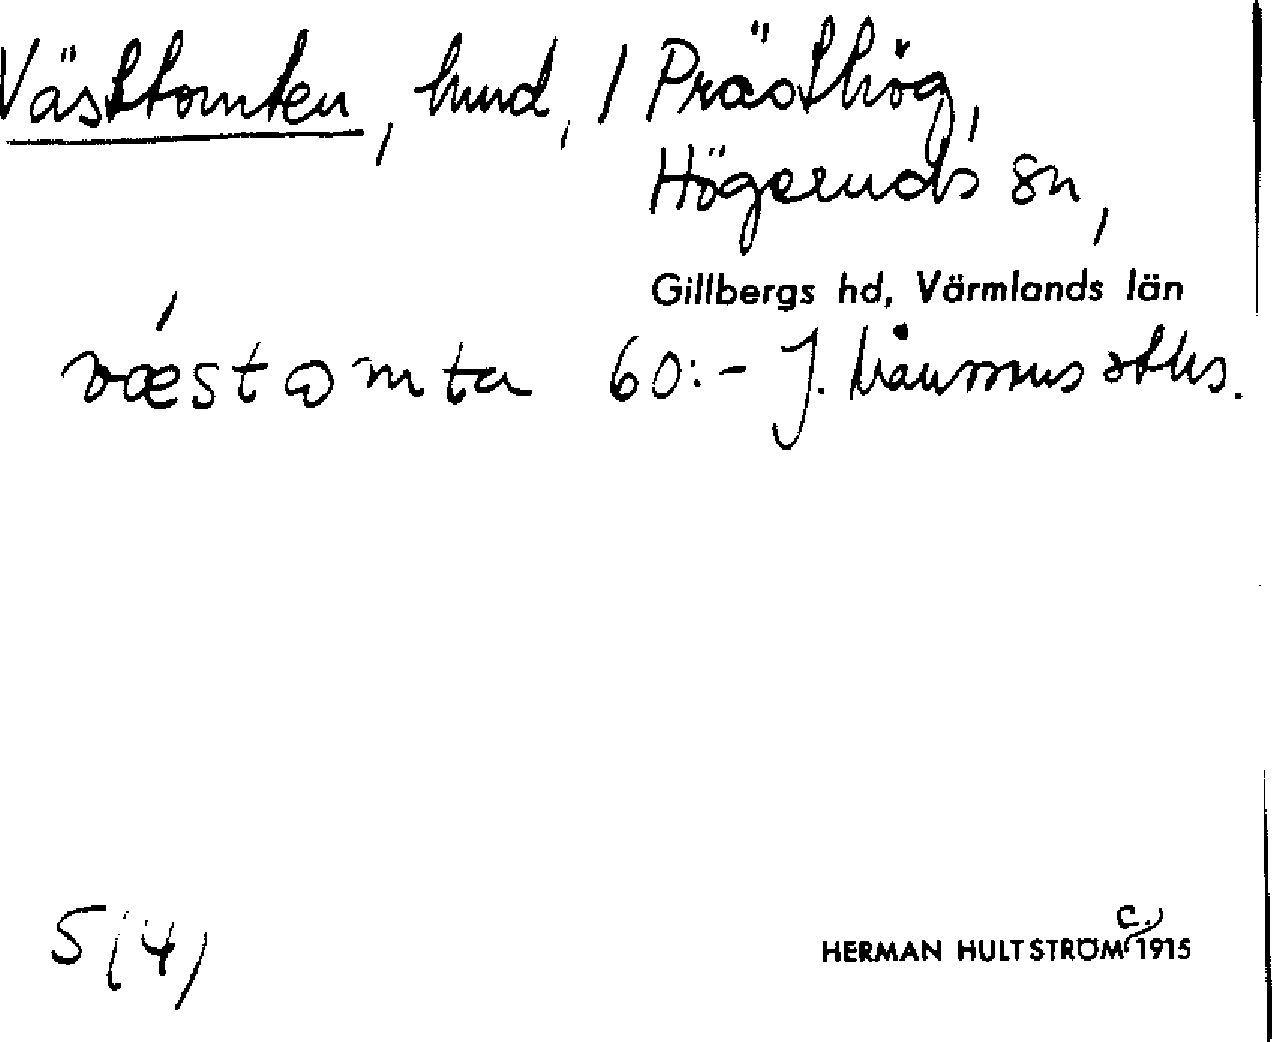 Västtomten, hmd, / Prästhög,
Högeruds sn,
Gillbergs hd, Värmlands län
væstomta 60:- J.
5 (4)
HERMAN HULTSTRÖM C. 1915